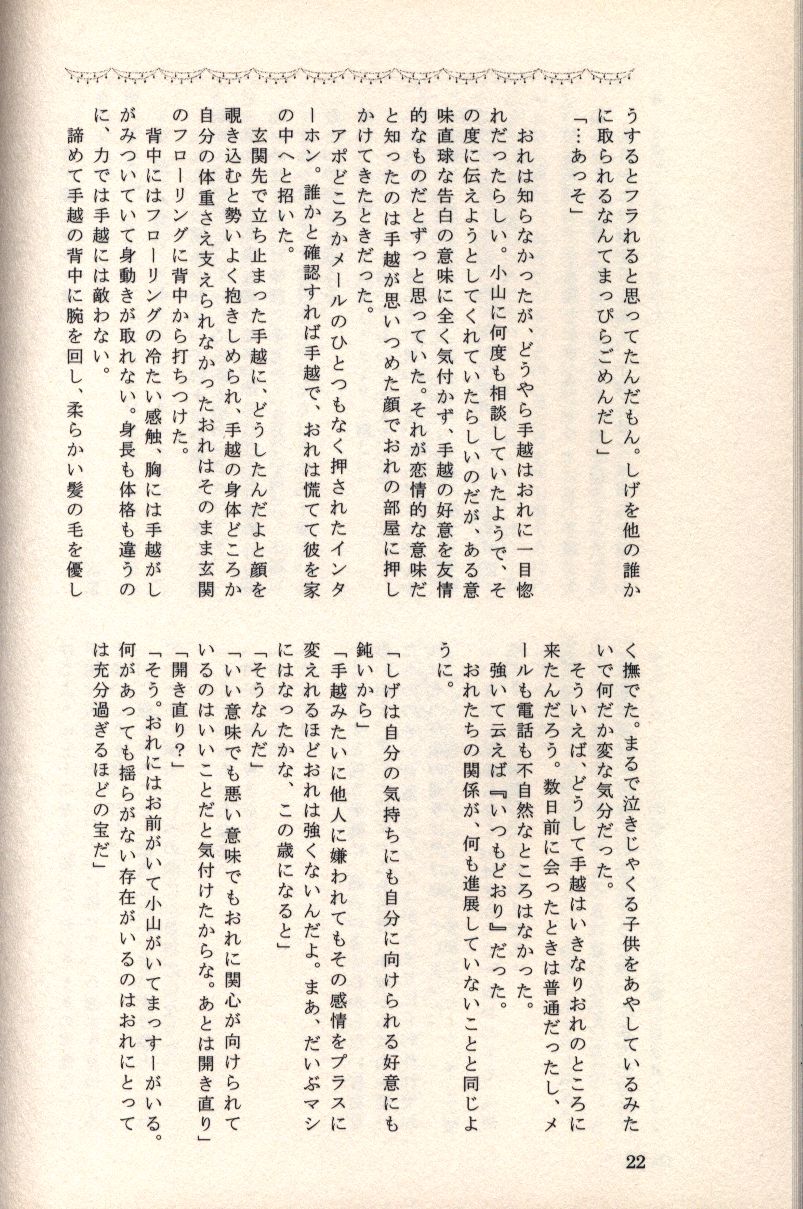 うするとフラれると思ってたんだもん。しげを他の誰か
に取られるなんてまっぴらごめんだし」
「…あっそ」
おれは知らなかったが、どうやら手越はおれに一目惚
れだったらしい。小山に何度も相談していたようで、そ
の度に伝えようとしてくれていたらしいのだが、ある意
味直球な告白の意味に全く気付かず、手越の好意を友情
的なものだとずっと思っていた。それが恋情的な意味だ
と知ったのは手越が思いつめた顔でおれの部屋に押し
かけてきたときだった。
アポどころかメールのひとつもなく押されたインタ
ーホン。誰かと確認すれば手越で、おれは慌てて彼を家
の中へと招いた。
玄関先で立ち止まった手越に、どうしたんだよと顔を
覗き込むと勢いよく抱きしめられ、手越の身体どころか
自分の体重さえ支えられなかったおれはそのまま玄関
のフローリングに背中から打ちつけた。
背中にはフローリングの冷たい感触、胸には手越がし
がみついていて身動きが取れない。身長も体格も違うの
に、力では手越には敵わない。
諦めて手越の背中に腕を回し、柔らかい髪の毛を優し
く撫でた。まるで泣きじゃくる子供をあやしているみた
いで何だか変な気分だった。
そういえば、どうして手越はいきなりおれのところに
来たんだろう。数日前に会ったときは普通だったし、メ
ールも電話も不自然なところはなかった。
強いて云えば『いつもどおり』だった。
おれたちの関係が、何も進展していないことと同じよ
うに。
「しげは自分の気持ちにも自分に向けられる好意にも
鈍いから」
「手越みたいに他人に嫌われてもその感情をプラスに
変えれるほどおれは強くないんだよ。まあ、だいぶマシ
にはなったかな、この歳になると」
「そうなんだ」
「いい意味でも悪い意味でもおれに関心が向けられて
いるのはいいことだと気付けたからな。あとは開き直り」
「開き直り？」
「そう。おれにはお前がいて小山がいてまっすーがいる。
何があっても揺らがない存在がいるのはおれにとって
は充分過ぎるほどの宝だ」
22